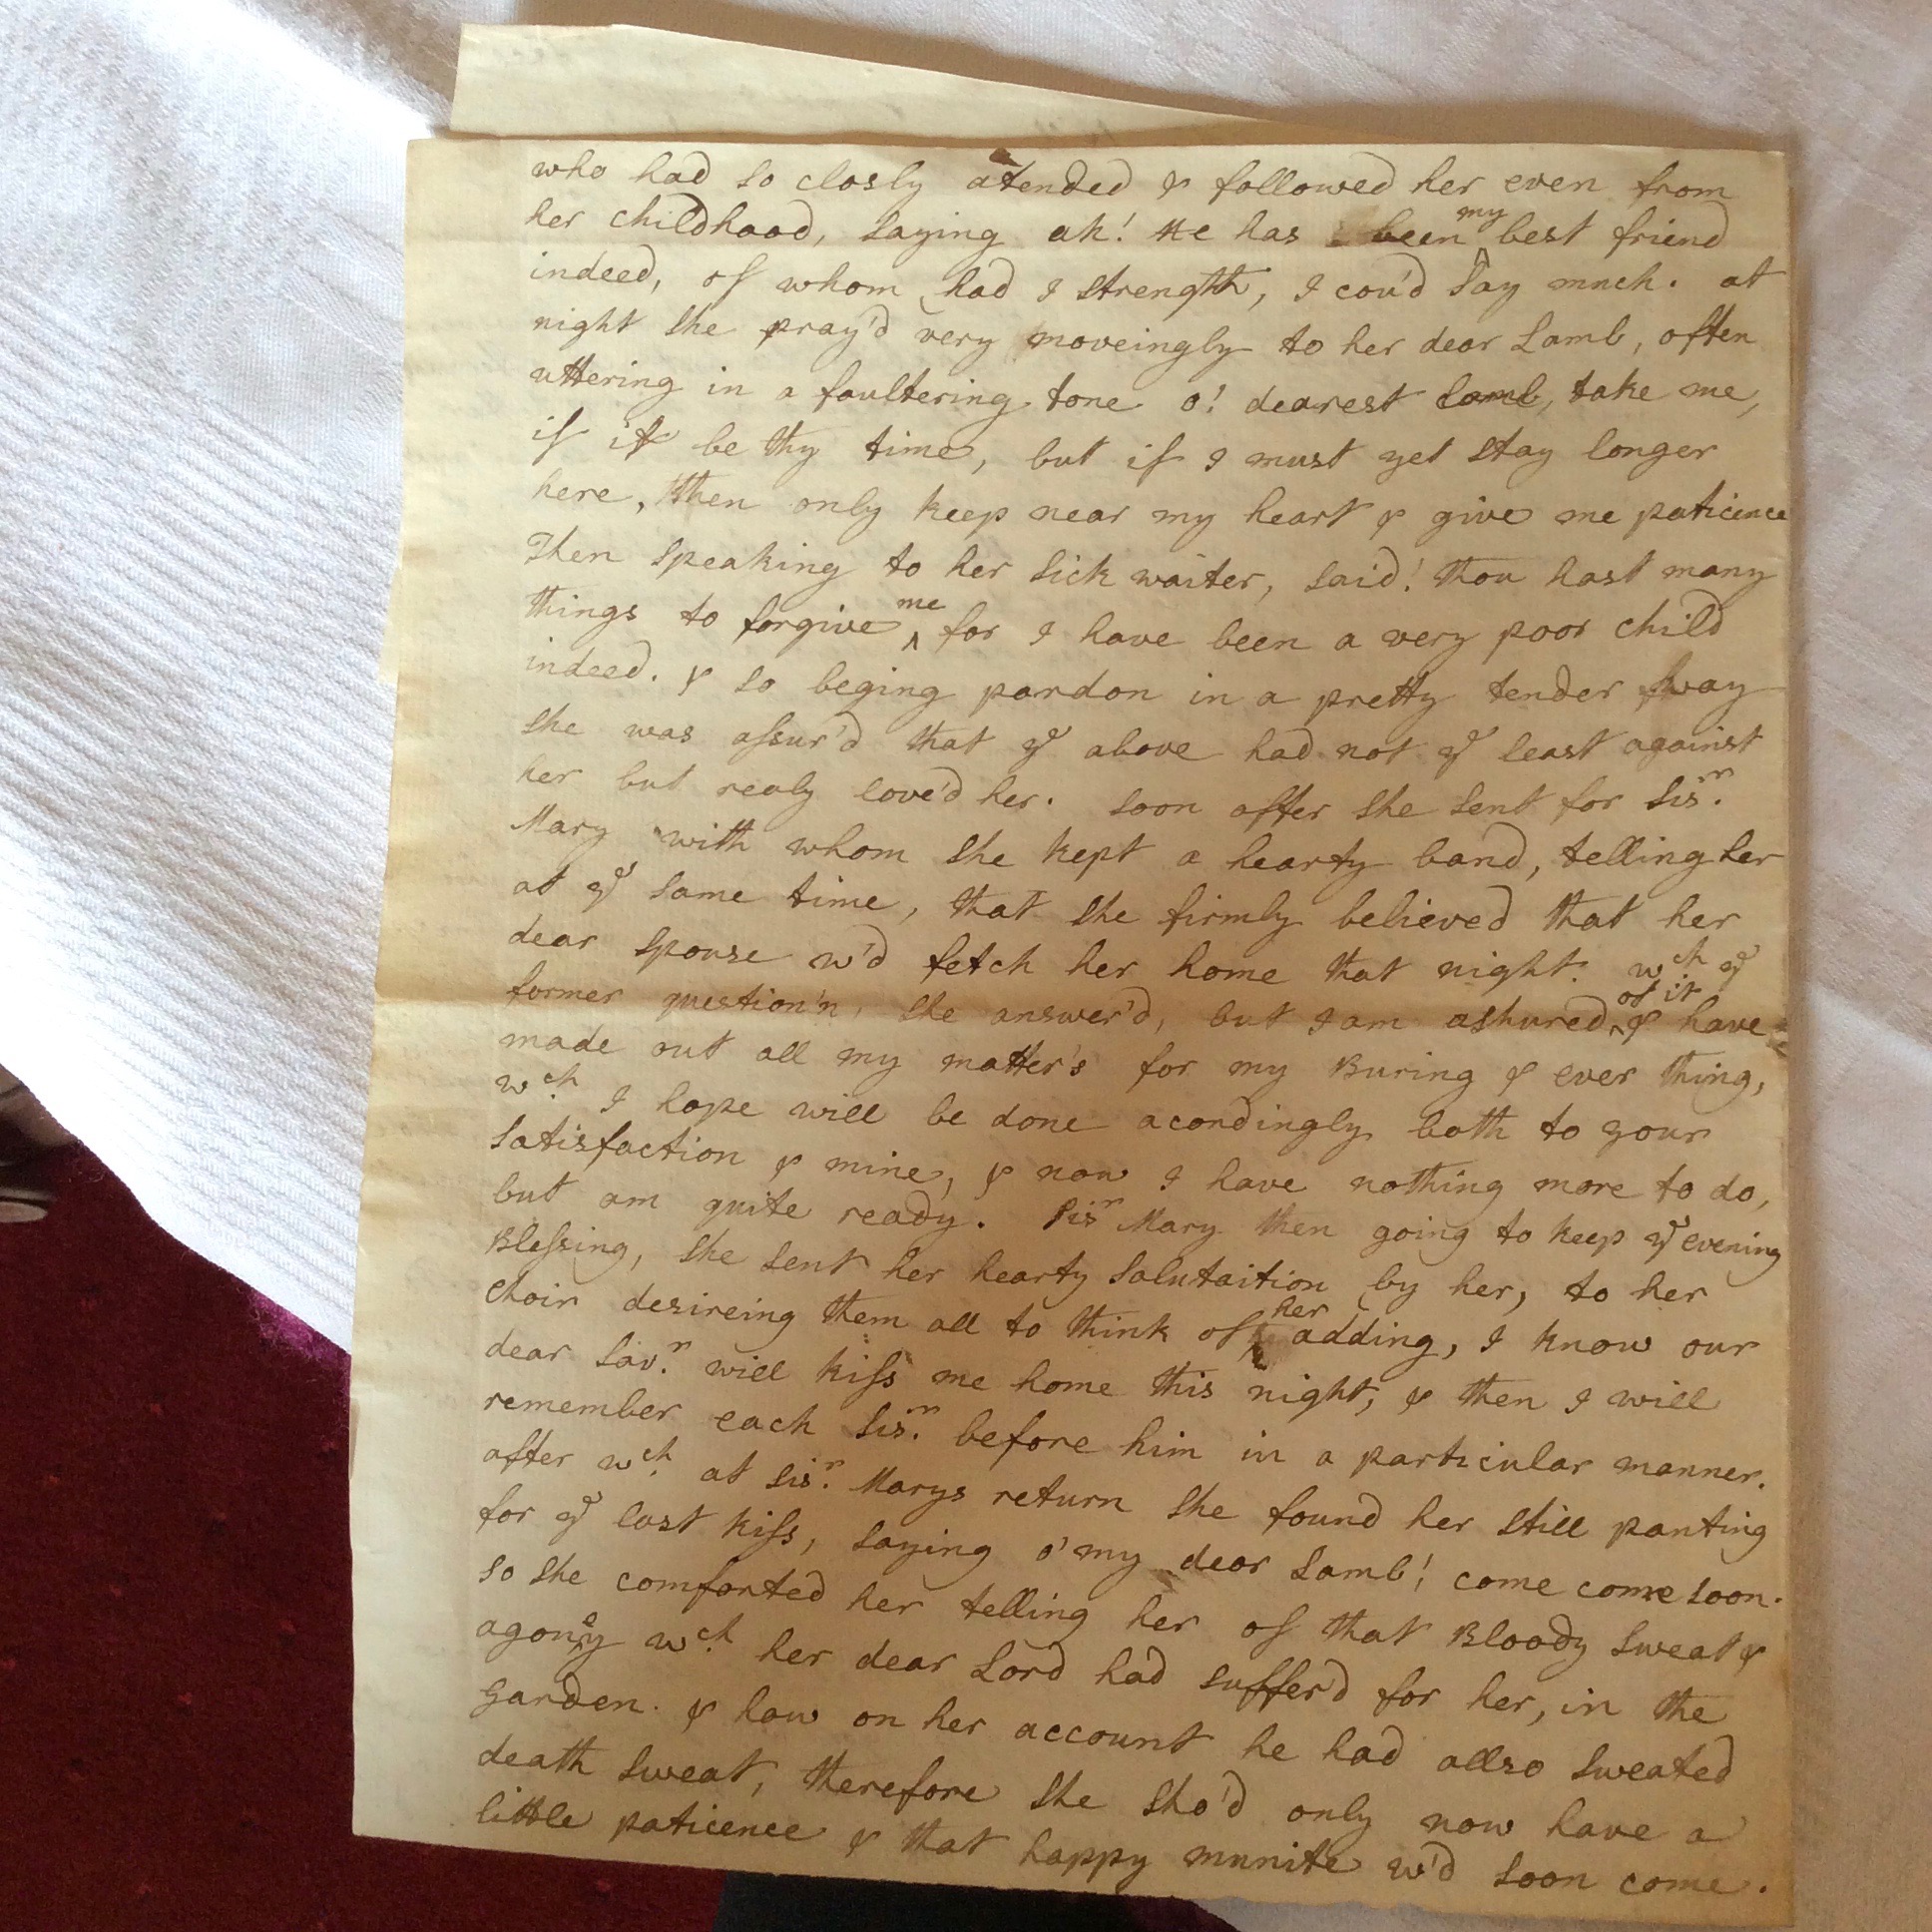 who had so closly atended & followed her even from
her childhood, saying ah! He has been my best friend
indeed, of whom had I strength, I cou'd say much. at
night she pray'd very moveingly to her dear Lamb, often
uttering in a faultering tone o! dearest Lamb, take me,
if it be thy time, but if I must yet stay longer
here, then only keep near my heart & give me paticence
Then speaking to her sick waiter, said! thou hast many
things to forgive me for I have been a very poor child
indeed. & so beging pardon in a pretty tender way
she was assur'd that ye above had not ye least against
her but realy love'd her. soon after she sent for Sisr.
Mary with whom she kept a hearty band, telling her
at ye same time, that she firmly believed that her
dear spouse w'd fetch her home that night. wch. ye
former question'n, she answer'd, but I am ashured of it & have
made out all my matter's for my Buring & ever thing,
wch. I hope will be done acordingly both to your
satisfaction & mine, & now I have nothing more to do,
but am quite ready. Sisr Mary then going to keep ye evening
Blessing, she sent her hearty salutaition by her, to her
Choir desireing them all to think of her adding, I know our
dear Savr. will kiss me home this night, & then I will
remember each Sisr. before him in a particular manner.
after wch. at Sisr. Marys return she found her still panting
for ye last kiss, saying o' my dear Lamb! come come soon.
so she comforted her telling her of that Bloody sweat &
agoney wch. her dear Lord had suffer'd for her, in the
Garden. & how on her account he had allso sweated
death sweat, therefore she sho'd only now have a
little paticence & that happy munite w'd soon come.